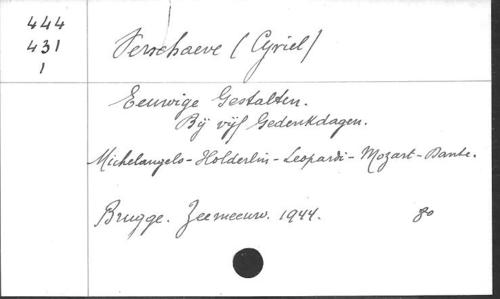 444
431
1
Verschaeve (Cyriel)
Eeuwige Gestalten.
Bij vijf Gedenkdagen.
Michelangelo - Hölderlin - Leopardi - Mozart - Dante.
Brugge. Zeemeeuw. 1944. 80